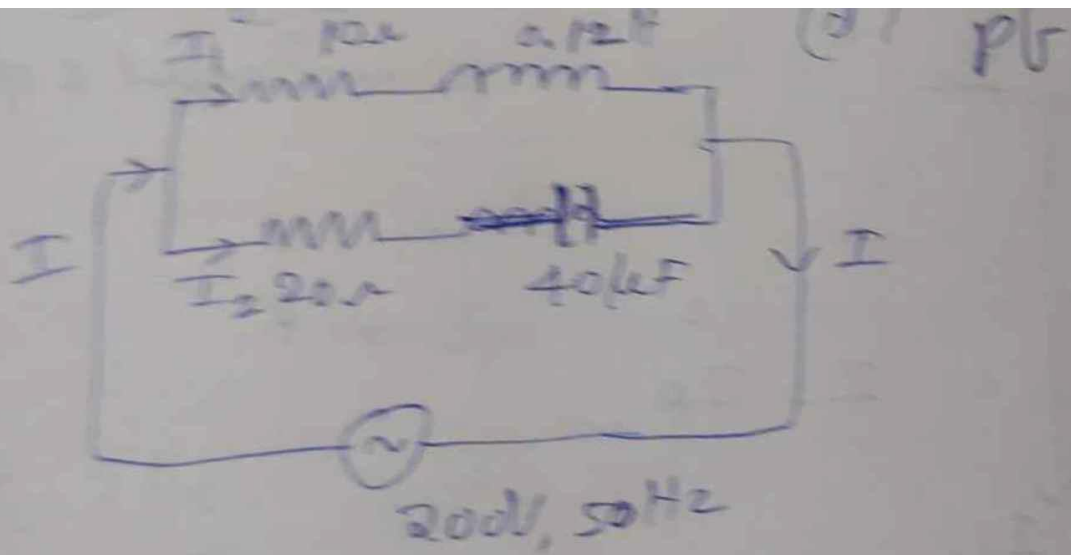 I₁ 12Ω 0.12H (d) pf
I I₂ 20Ω 40μF I
200V, 50Hz